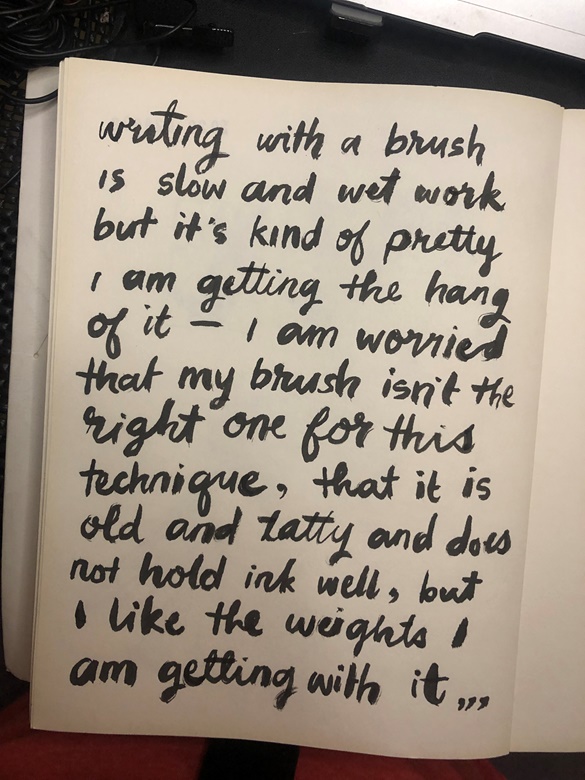 writing with a brush
is slow and wet work
but it's kind of pretty
I am getting the hang
of it — I am worried
that my brush isn't the
right one for this
technique, that it is
old and tatty and does
not hold ink well, but
I like the weights I
am getting with it ,,,